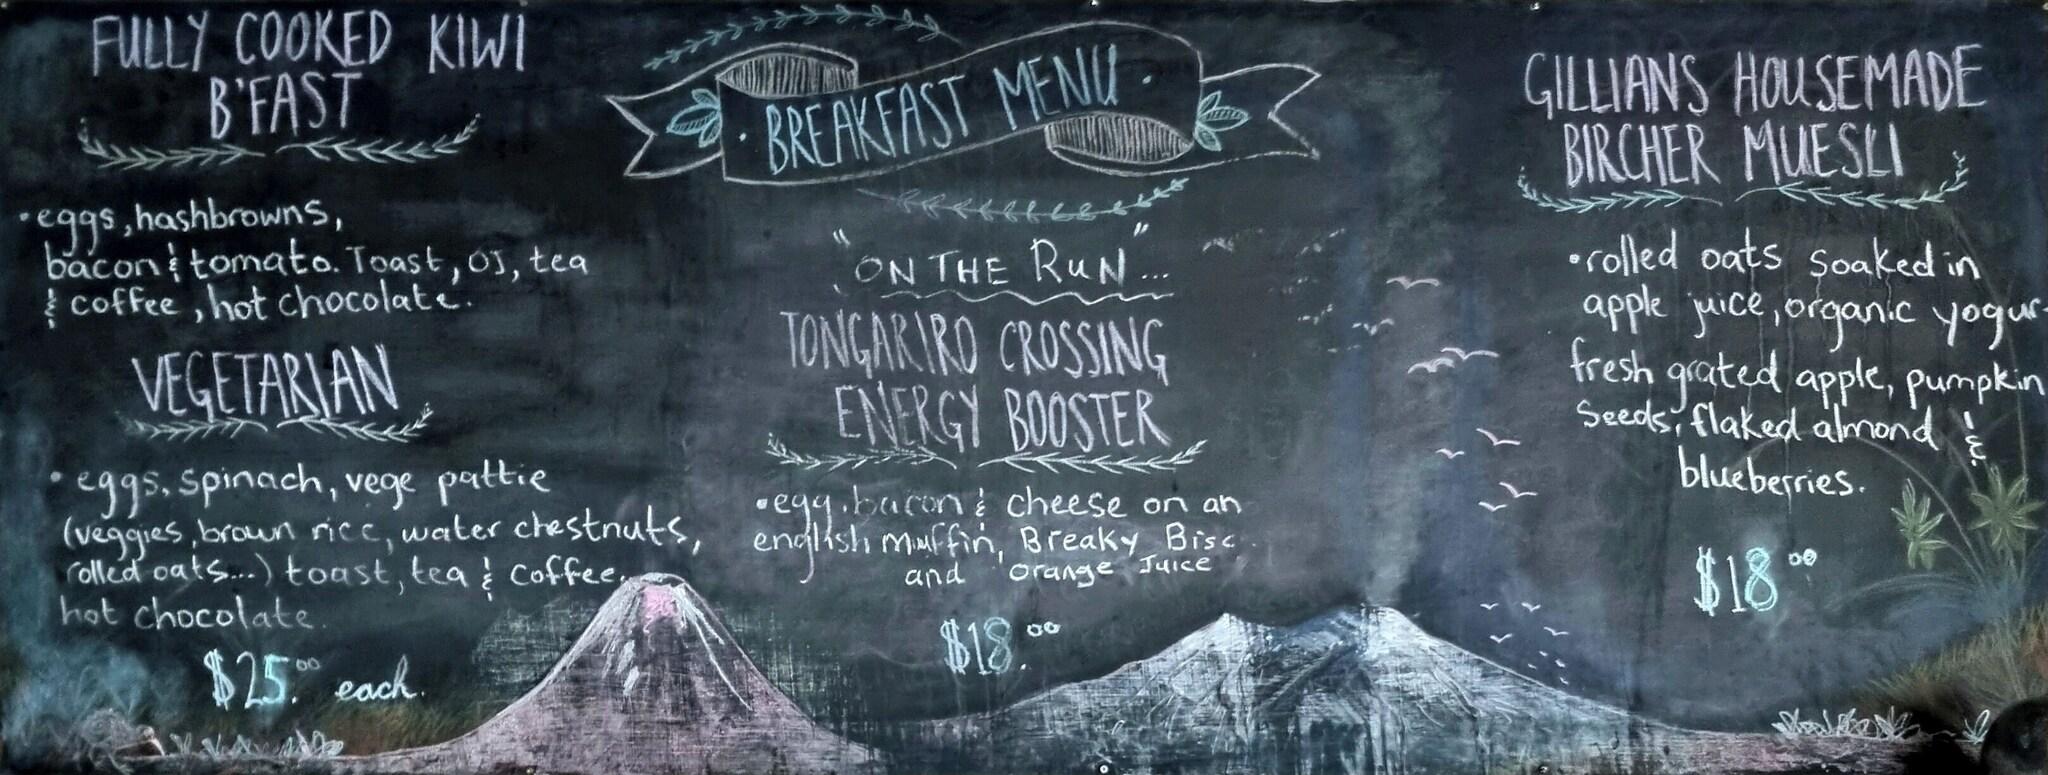 FULLY COOKED KIWI
B'FAST
• eggs, hashbrowns,
bacon & tomato. Toast, OJ, tea
& coffee, hot chocolate.
VEGETARIAN
• eggs, spinach, vege pattie
(veggies, brown rice, water chestnuts,
rolled oats...) toast, tea & coffee.
hot chocolate.
$25.00 each.
• BREAKFAST MENU •
"ON THE RUN"...
TONGARIRO CROSSING
ENERGY BOOSTER
• egg, bacon & cheese on an
english muffin, Breaky Bisc.
and orange Juice
$18.00
GILLIANS HOUSEMADE
BIRCHER MUESLI
• rolled oats soaked in
apple juice, organic yogur
fresh grated apple, pumpkin
seeds, flaked almond &
blueberries.
$18.00